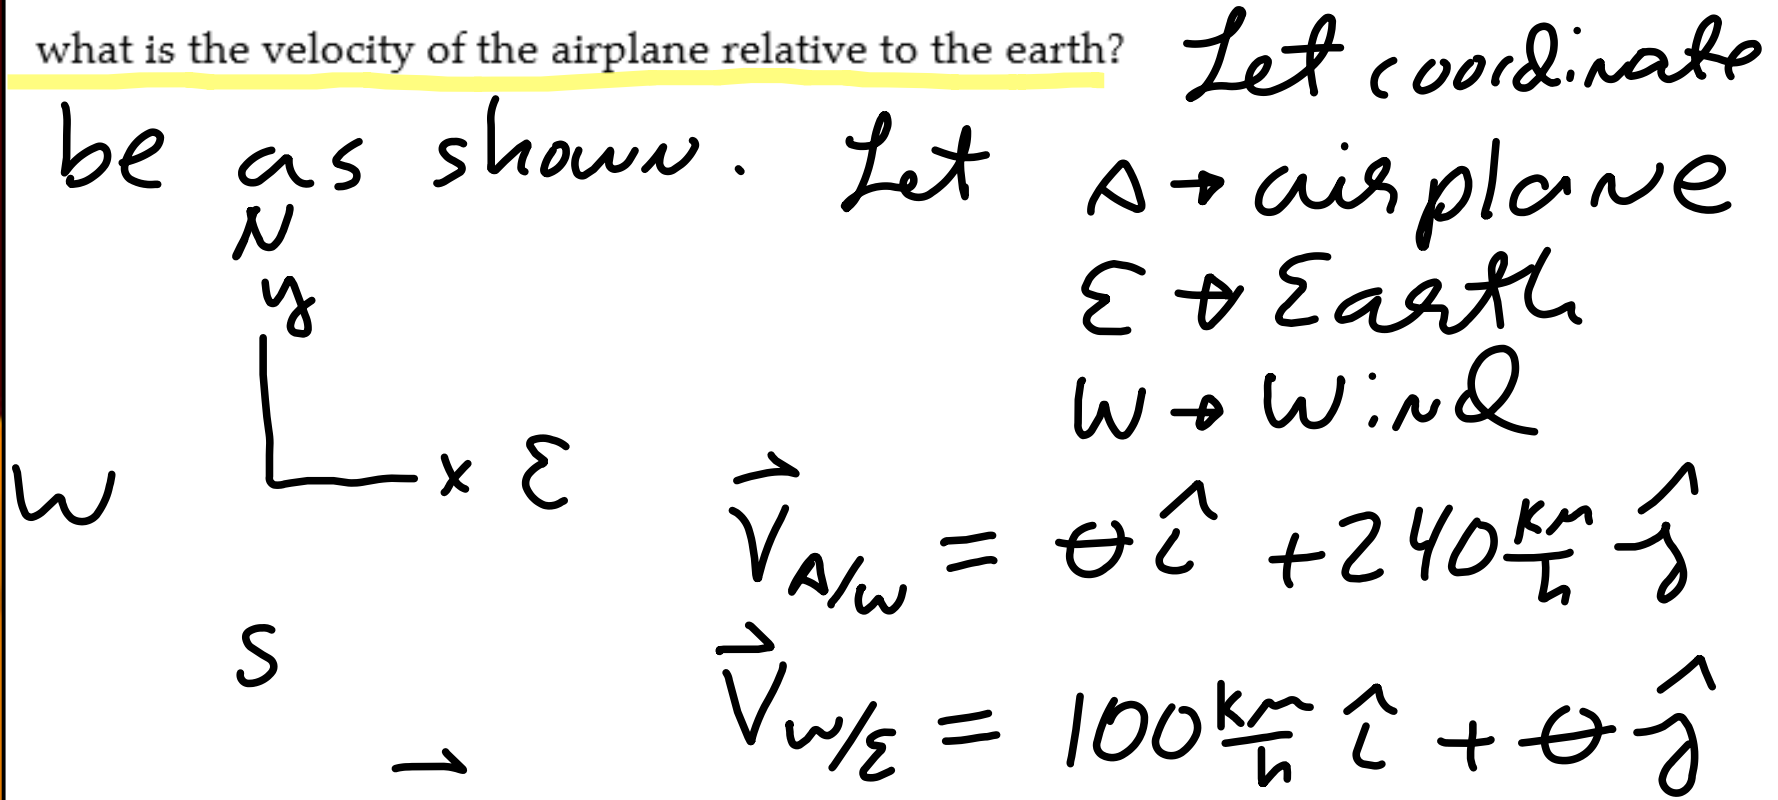 what is the velocity of the airplane relative to the earth? Let coordinate
be as shown. Let A → airplane
N
y
E → Earth
W → Wind
W x E
V⃗ A/W = 0 î + 240 km/h ĵ
S
V⃗ W/E = 100 km/h î + 0 ĵ